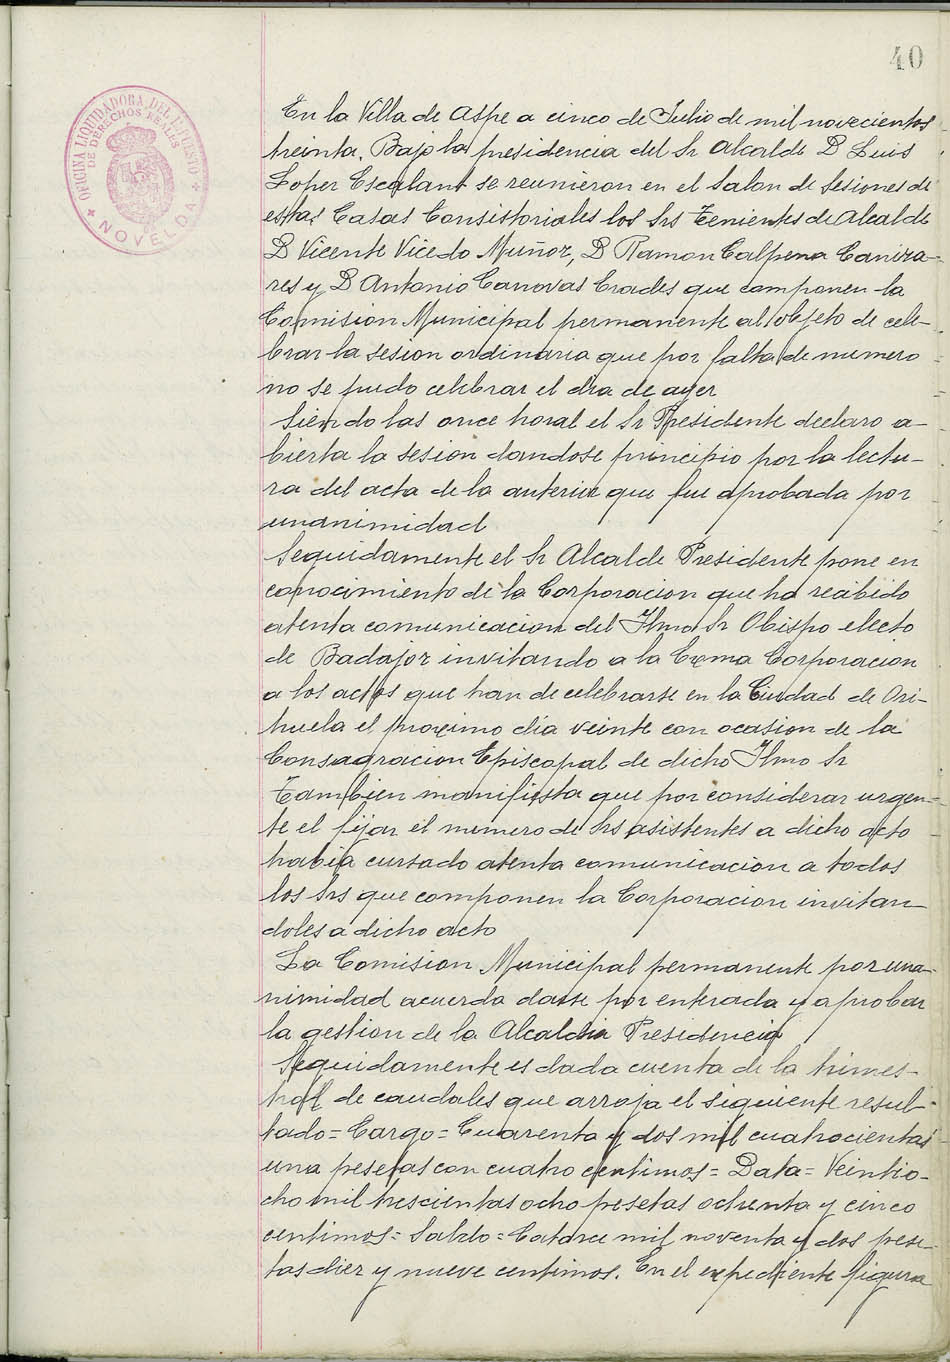 40
OFICINA LIQUIDADORA DEL IMPUESTO
DE DERECHOS REALES
NOVELDA
En la Villa de Aspe a cinco de Julio de mil novecientos
treinta. Bajo la presidencia del Sr Alcalde D Luis
Lopez Escalant se reunieron en el Salon de Sesiones de
estas Casas Consistoriales los Srs Tenientes de Alcalde
D Vicente Vicedo Muñoz, D Ramon Calpena Caniza-
res y D Antonio Canovas Erades que componen la
Comision Municipal permanente al objeto de cele-
brar la sesion ordinaria que por falta de numero
no se pudo celebrar el dia de ayer
Siendo las once horas el Sr Presidente declaro a-
bierta la sesion dandose principio por la lectu-
ra del acta de la anterior que fue aprobada por
unanimidad
Seguidamente el Sr Alcalde Presidente pone en
conocimiento de la Corporacion que ha recibido
atenta comunicacion del Ilmo Sr Obispo electo
de Badajoz invitando a la Exma Corporacion
a los actos que han de celebrarse en la Ciudad de Ori-
huela el proximo dia veinte con ocasion de la
Consagracion Episcopal de dicho Ilmo Sr
Tambien manifiesta que por considerar urgen-
te el fijar el numero de Srs asistentes a dicho acto
habia cursado atenta comunicacion a todos
los Srs que componen la Corporacion invitan-
doles a dicho acto
La Comision Municipal permanente por una-
nimidad acuerda darse por enterada y aprobar
la gestion de la Alcaldia Presidencia
Seguidamente es dada cuenta de la trimes-
tral de caudales que arroja el siguiente resul-
tado = Cargo = Cuarenta y dos mil cuatrocientas
una pesetas con cuatro centimos = Data = Veintio-
cho mil trescientas ocho pesetas ochenta y cinco
centimos = Saldo = Catorce mil noventa y dos pese-
tas diez y nueve centimos. En el expediente figura